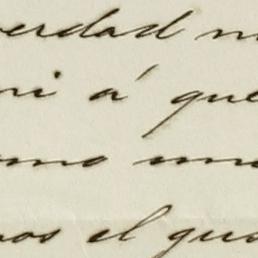 verdad m
ni á que
omo una
nos el gus